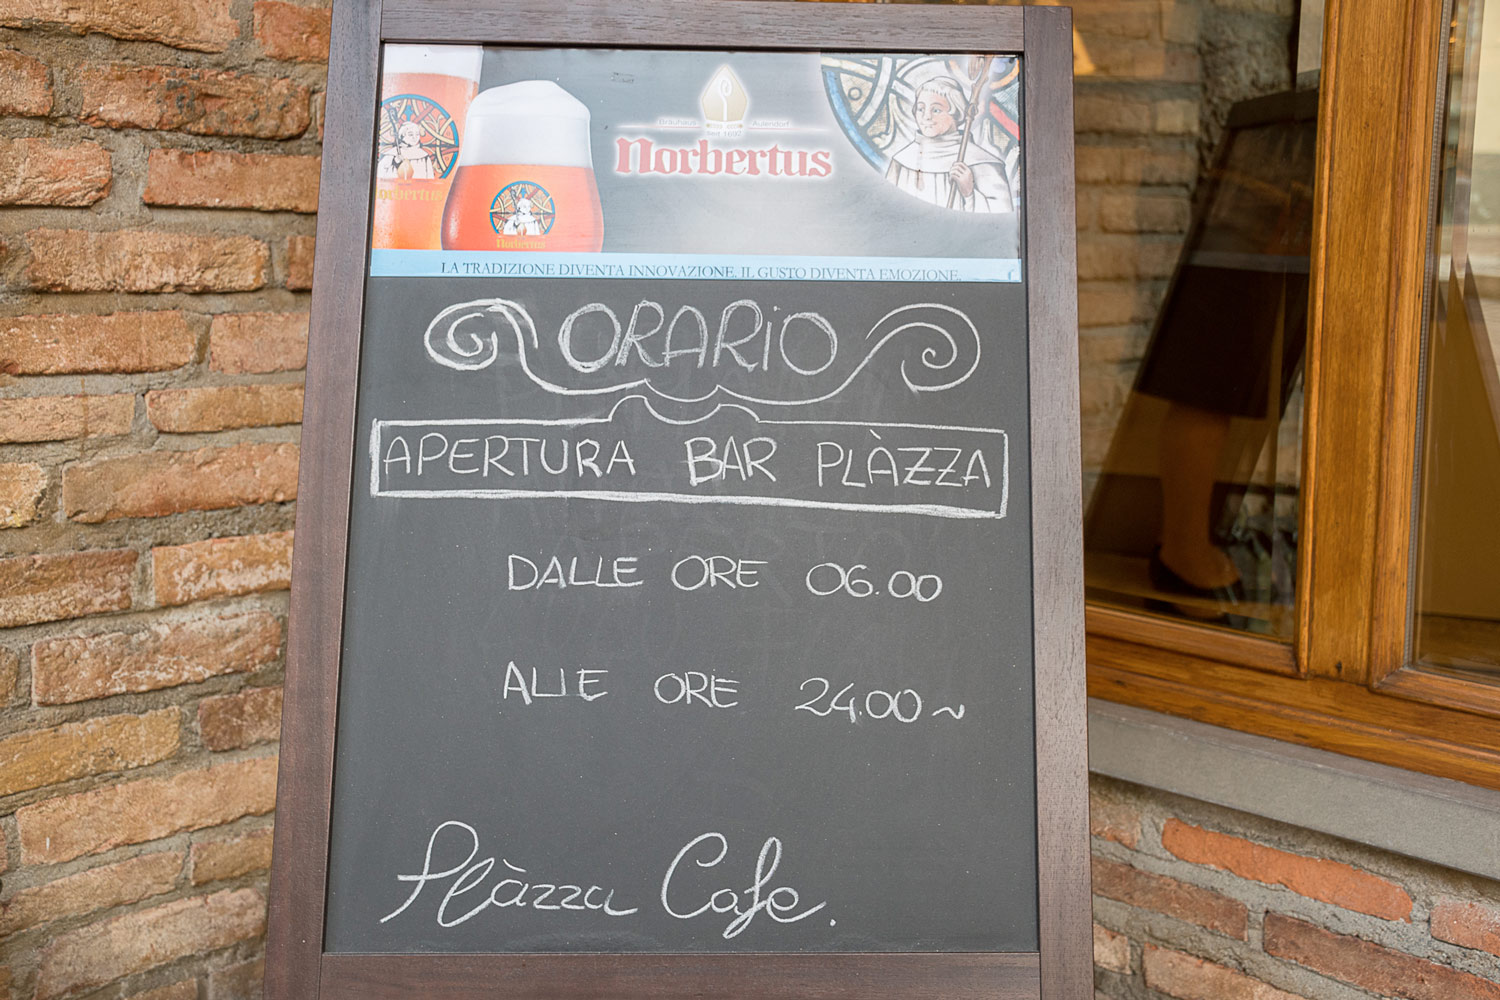 Bräuhaus Aulendorf
Seit 1600
Norbertus
Norbertus
Norbertus
LA TRADIZIONE DIVENTA INNOVAZIONE. IL GUSTO DIVENTA EMOZIONE.
ORARIO
APERTURA BAR PLÀZZA
DALLE ORE 06.00
ALLE ORE 24.00~
Plàzza Cafe.